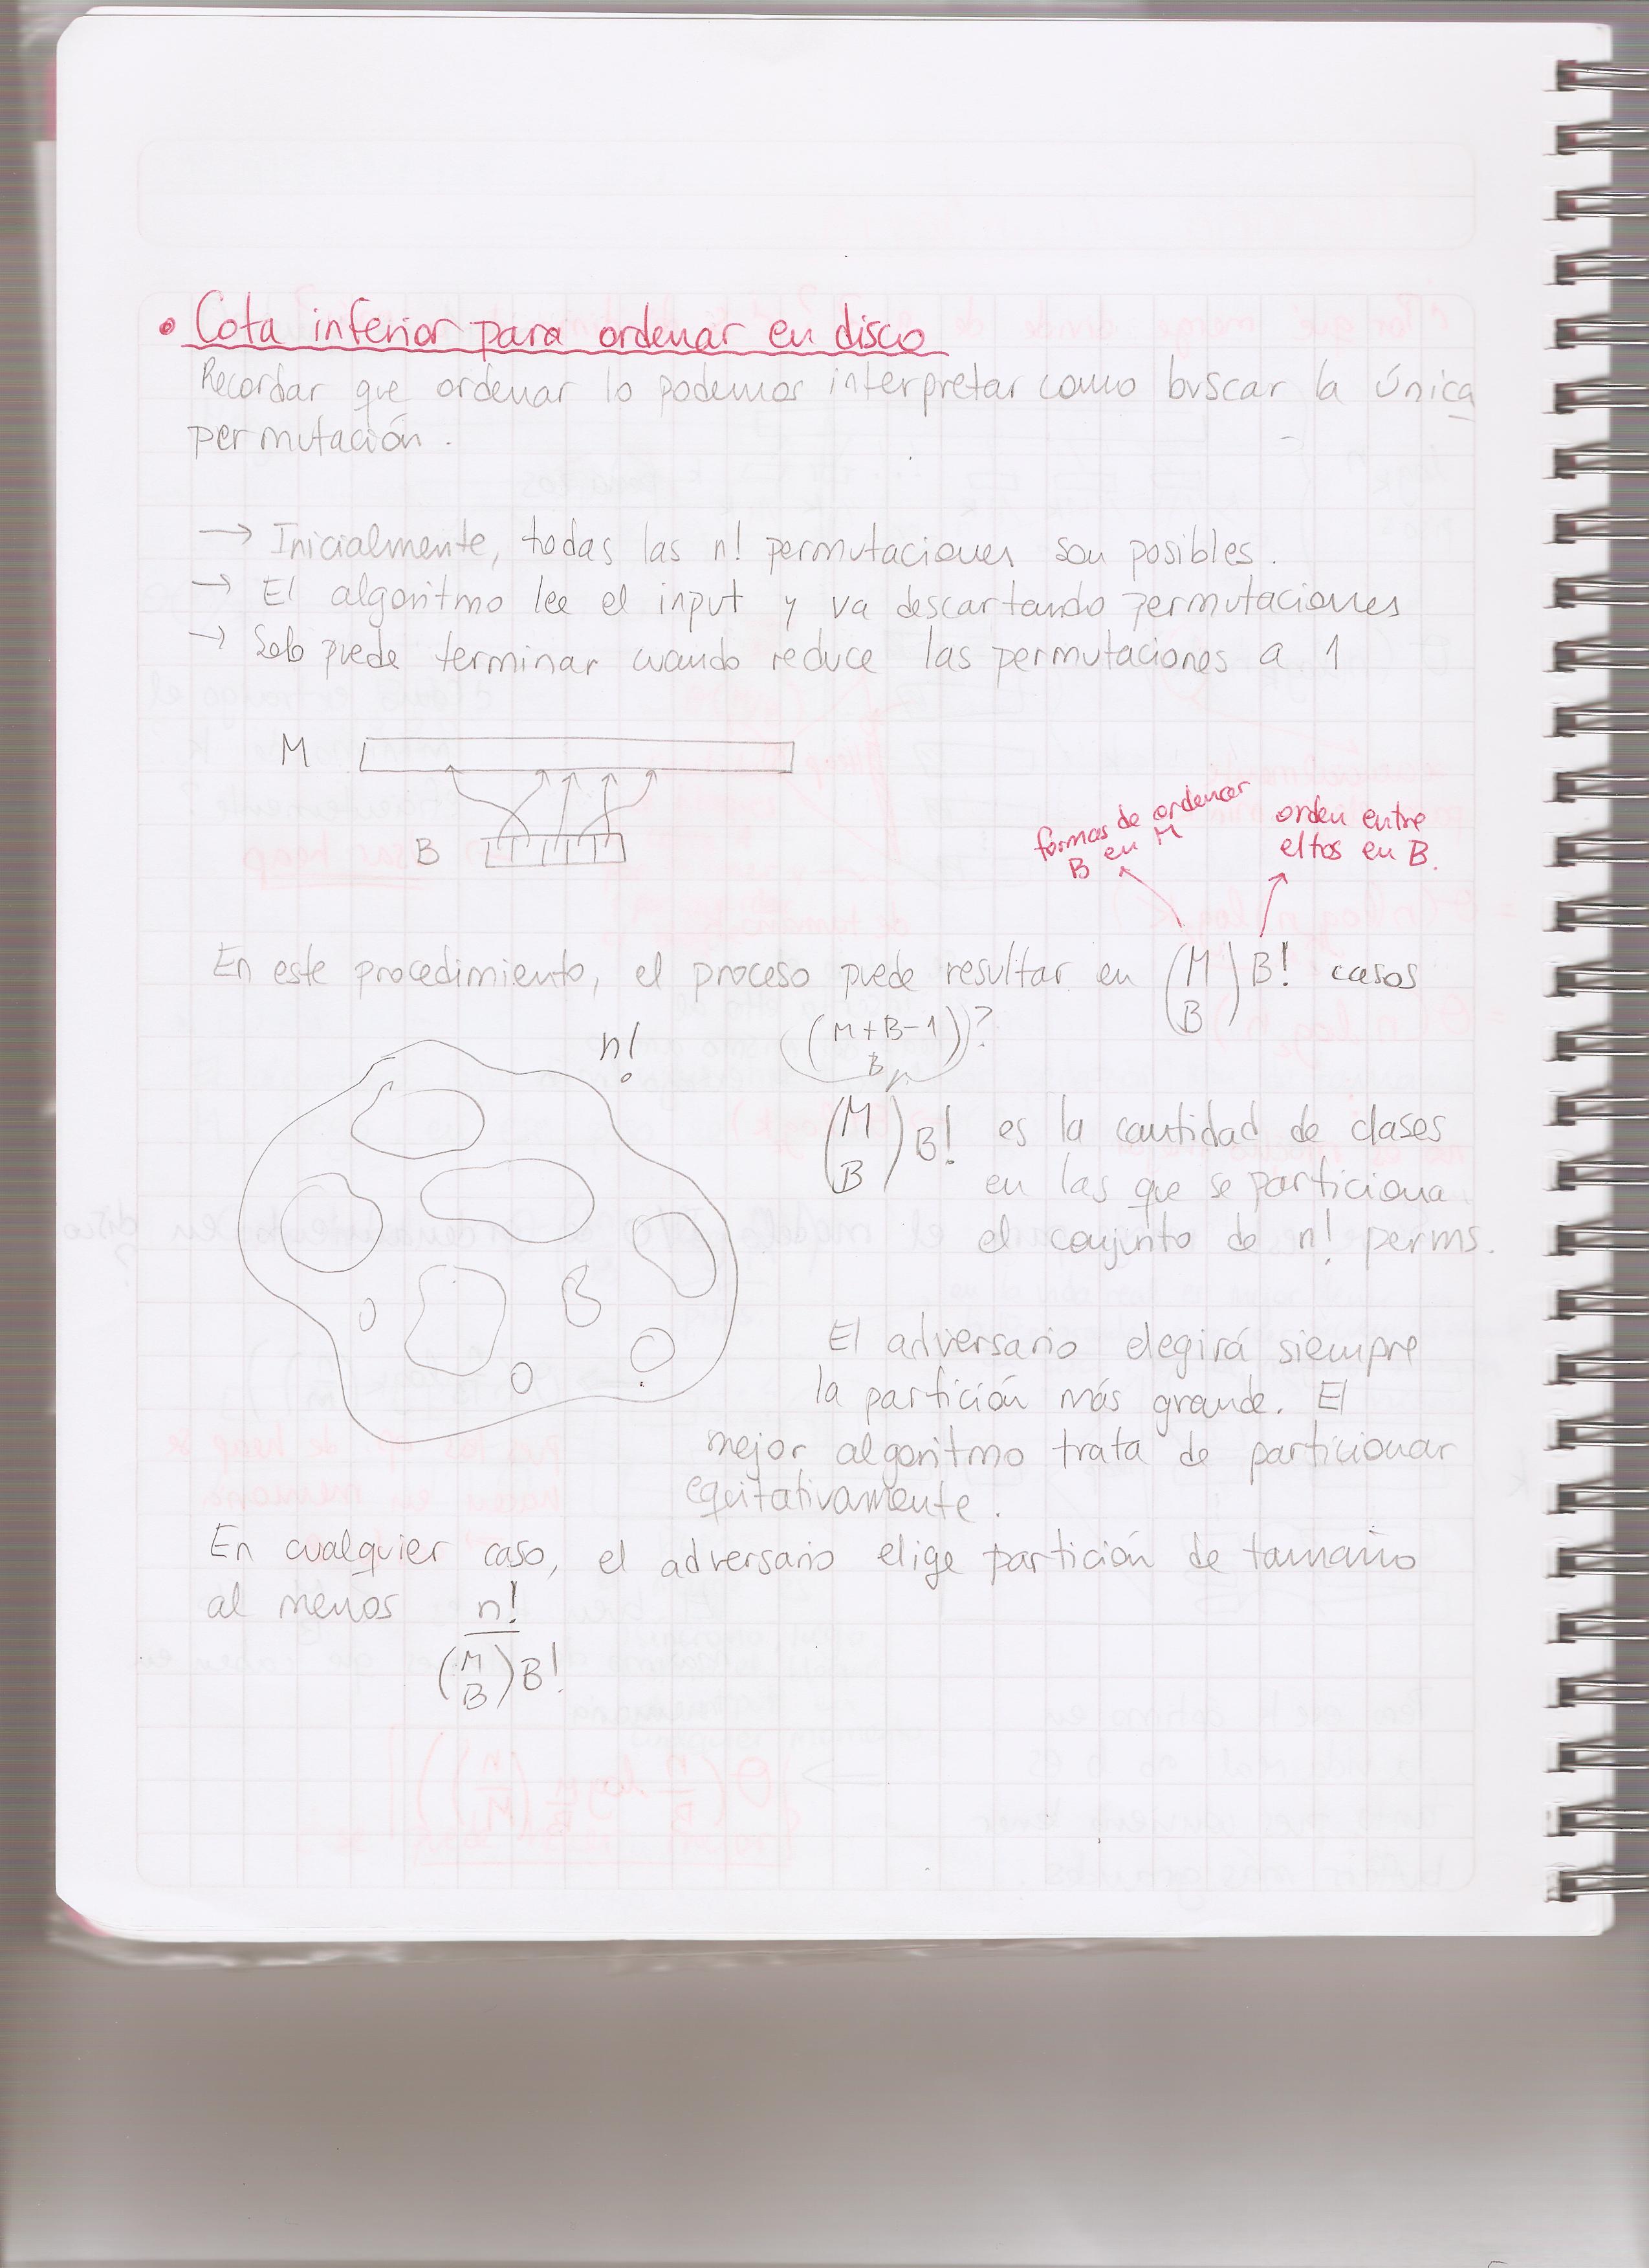 • Cota inferior para ordenar en disco
Recordar que ordenar lo podemos interpretar como buscar la única
permutación.
→ Inicialmente, todas las n! permutaciones son posibles.
→ El algoritmo lee el input y va descartando permutaciones
→ Solo puede terminar cuando reduce las permutaciones a 1
M
B
formas de ordenar
B en M
orden entre
eltos en B.
En este procedimiento, el proceso puede resultar en (M B) B! casos
n!
(M+B-1 B)?
(M B) B! es la cantidad de clases
en las que se particiona
el conjunto de n! perms.
El adversario elegirá siempre
la partición más grande. El
mejor algoritmo trata de particionar
equitativamente.
En cualquier caso, el adversario elige partición de tamaño
al menos n!
(M B) B!